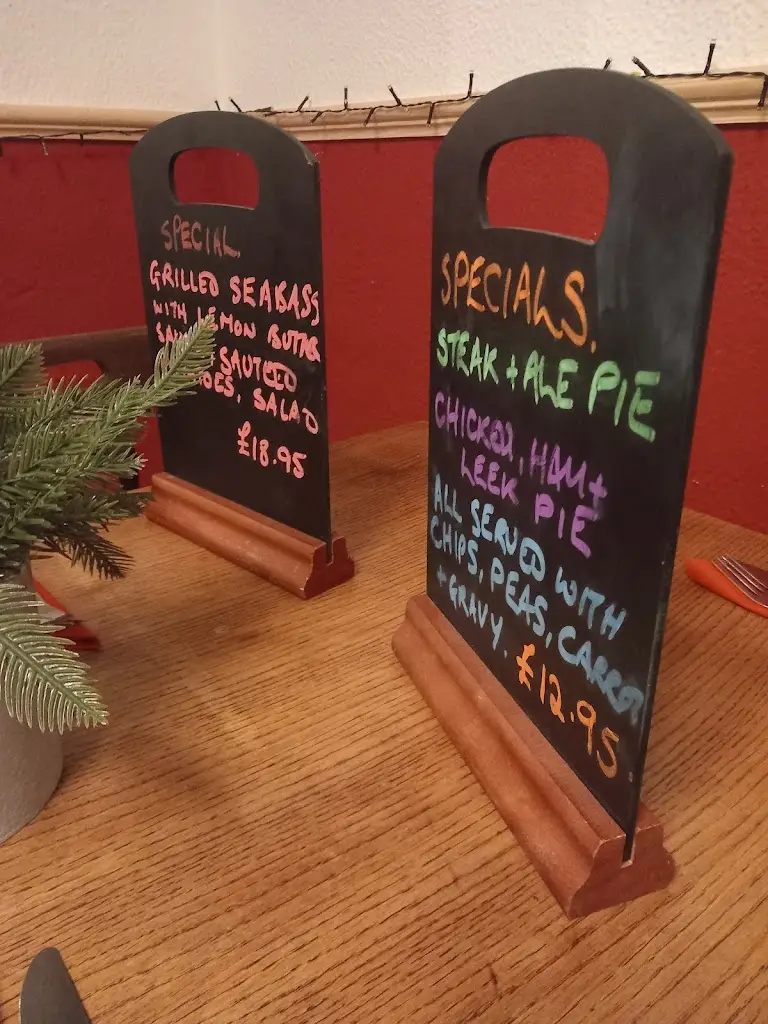 SPECIAL.
GRILLED SEABASS
WITH LEMON BUTTER
+ SAUTEED
SALAD
£18.95
SPECIALS.
STEAK + ALE PIE
CHICKEN, HAM +
LEEK PIE
ALL SERVED WITH
CHIPS, PEAS, CARROT
+ GRAVY. £12.95